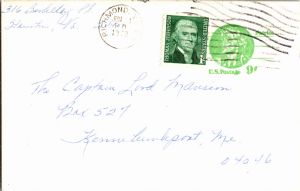 316 Berkley Pl
Hampton, Va.
RICHMOND
PM
1973
THOMAS JEFFERSON
UNITED STATES
1¢
U.S. Postage 9¢
The Captain Lord Mansion
Box 527
Kennebunkport, Me.
04046